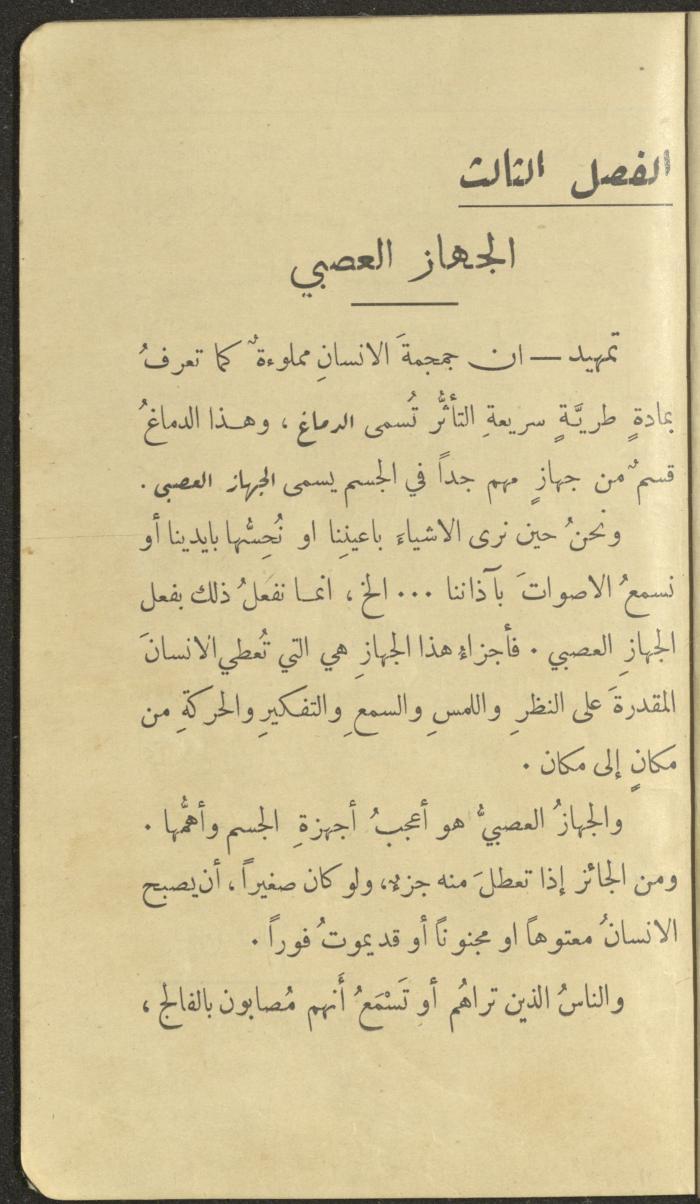 الفصل الثالث
الجهاز العصبي
تمهيد — ان جمجمةَ الانسانِ مملوءةٌ كما تعرفُ
بمادةٍ طريَّةٍ سريعةِ التأثُّر تُسمى الدماغ ، وهذا الدماغُ
قسمٌ من جهازٍ مهم جداً في الجسم يسمى الجهاز العصبي .
ونحنُ حين نرى الاشياءَ باعيننِا او نُحِسُّها بايدينا أو
نسمعُ الاصواتَ بآذاننا ... الخ ، انما نفعلُ ذلك بفعل
الجهازِ العصبي . فأجزاءُ هذا الجهازِ هي التي تُعطي الانسانَ
المقدرةَ على النظرِ واللمسِ والسمعِ والتفكيرِ والحركةِ من
مكانٍ إلى مكان .
والجهازُ العصبيُّ هو أعجبُ أجهزةِ الجسم وأهمُّها .
ومن الجائز إذا تعطلَ منه جزء، ولو كان صغيراً ، أن يصبح
الانسانُ معتوهاً او مجنوناً أو قد يموتُ فوراً .
والناسُ الذين تراهُم أو تَسْمَعُ أَنهم مُصابون بالفالج ،